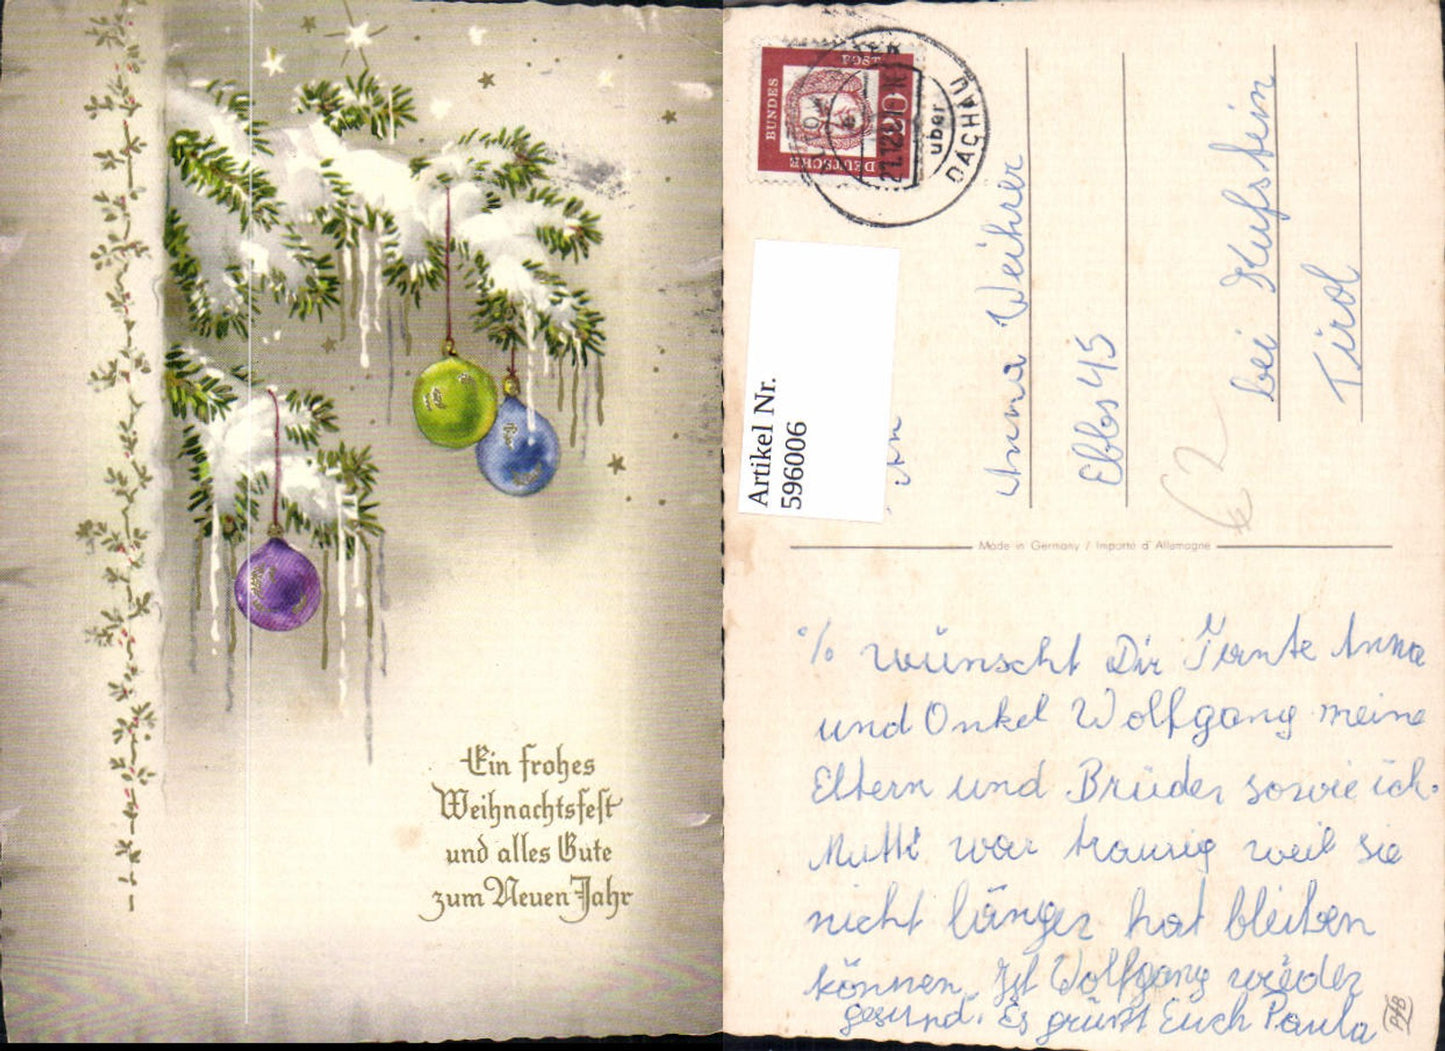 Ein frohes
Weihnachtsfest
und alles Gute
zum Neuen Jahr
DEUTSCHE
BUNDES
POST
20
über
DACHAU
Artikel Nr.
596006
An
Anna Weihrer
Ebbs 45
bei Kufstein
Tirol
62
Made in Germany / Importé d'Allemagne
% wünscht Dir Tante Anna
und Onkel Wolfgang meine
Eltern und Brüder sowie ich.
Mutti war traurig weil sie
nicht länger hat bleiben
können. Ist Wolfgang wieder
gesund. Es grüßt Euch Paula